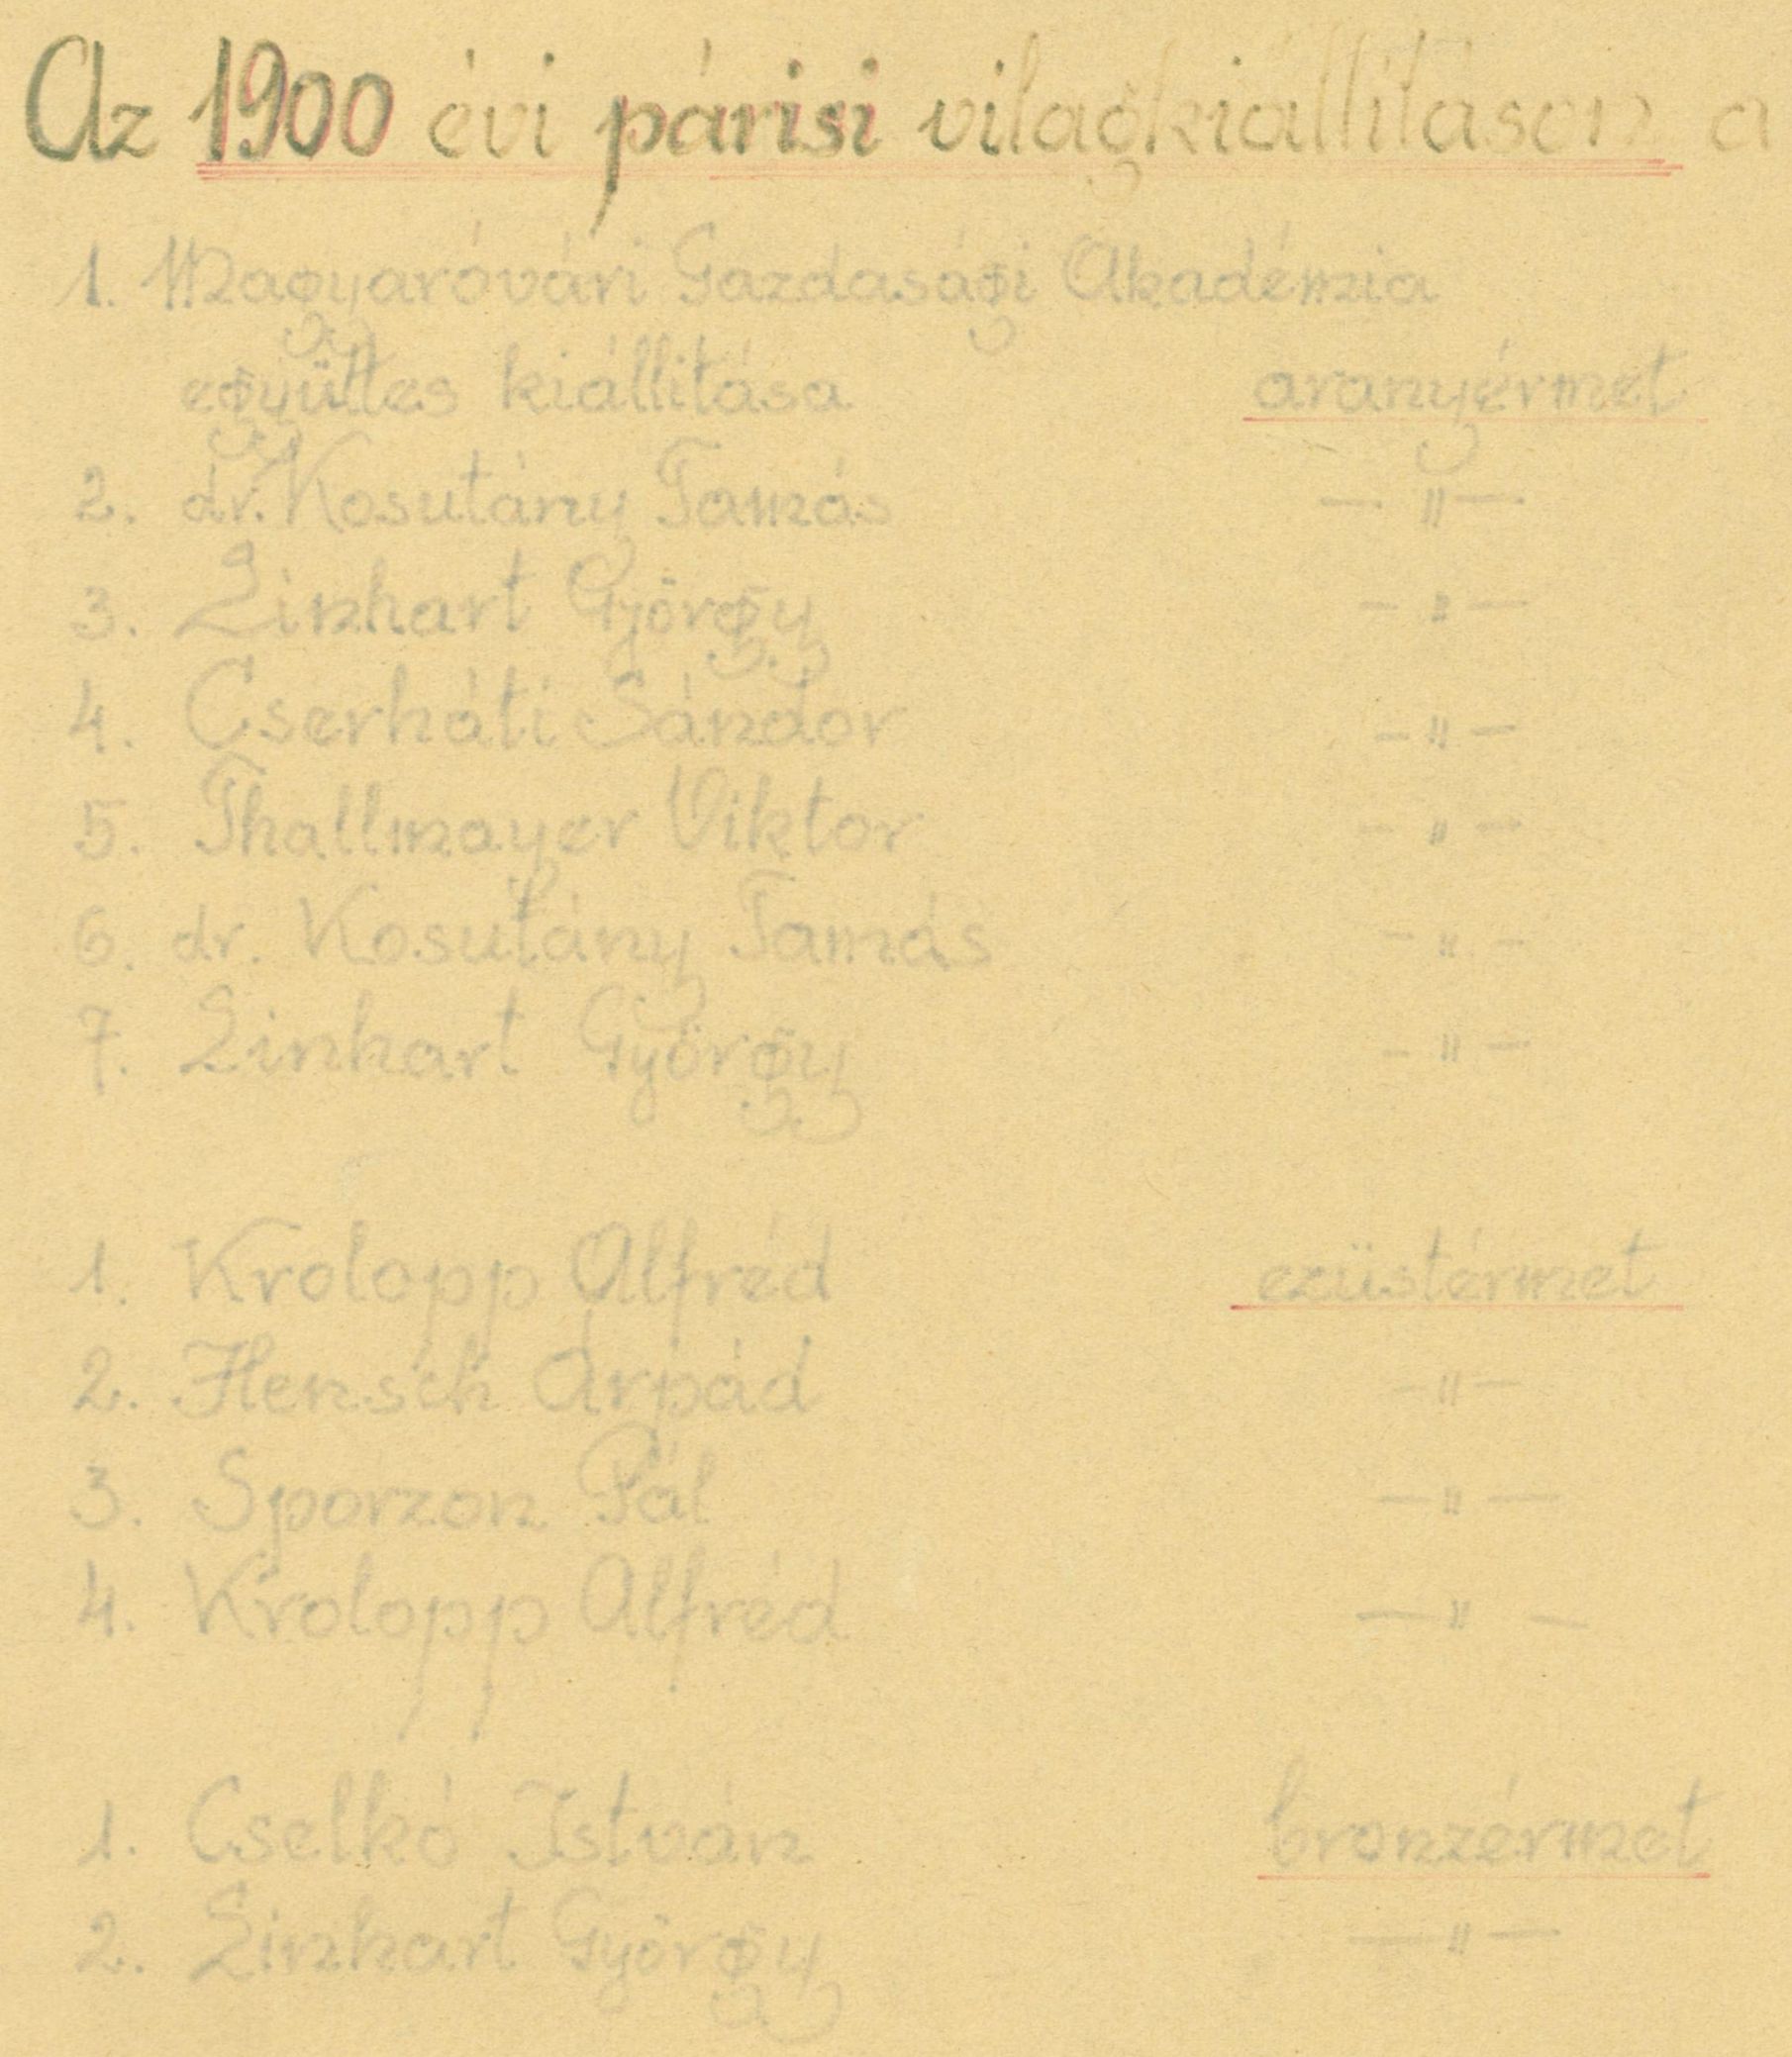 Az 1900 évi párisi világkiállításon a
1. Magyaróvári Gazdasági Akadémia
együttes kiállitása aranyérmet
2. dr. Kosutány Tamás — " —
3. Linhart György — " —
4. Cserháti Sándor — " —
5. Thallmayer Viktor — " —
6. dr. Kosutány Tamás — " —
7. Linhart György — " —
1. Krolopp Alfréd ezüstérmet
2. Hensch Árpád — " —
3. Sporzon Pál — " —
4. Krolopp Alfréd — " —
1. Cselkó István bronzérmet
2. Linhart György — " —